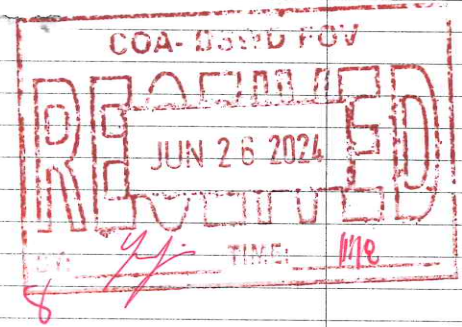 COA- DSWD FOV
RECEIVED
JUN 26 2024
BY: TIME: